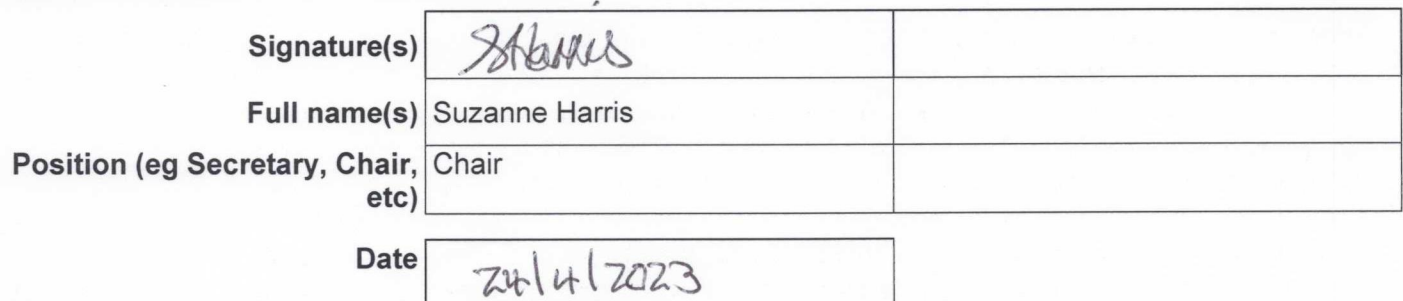 Signature(s) SHarris
Full name(s) Suzanne Harris
Position (eg Secretary, Chair, Chair
etc)
Date 24/4/2023